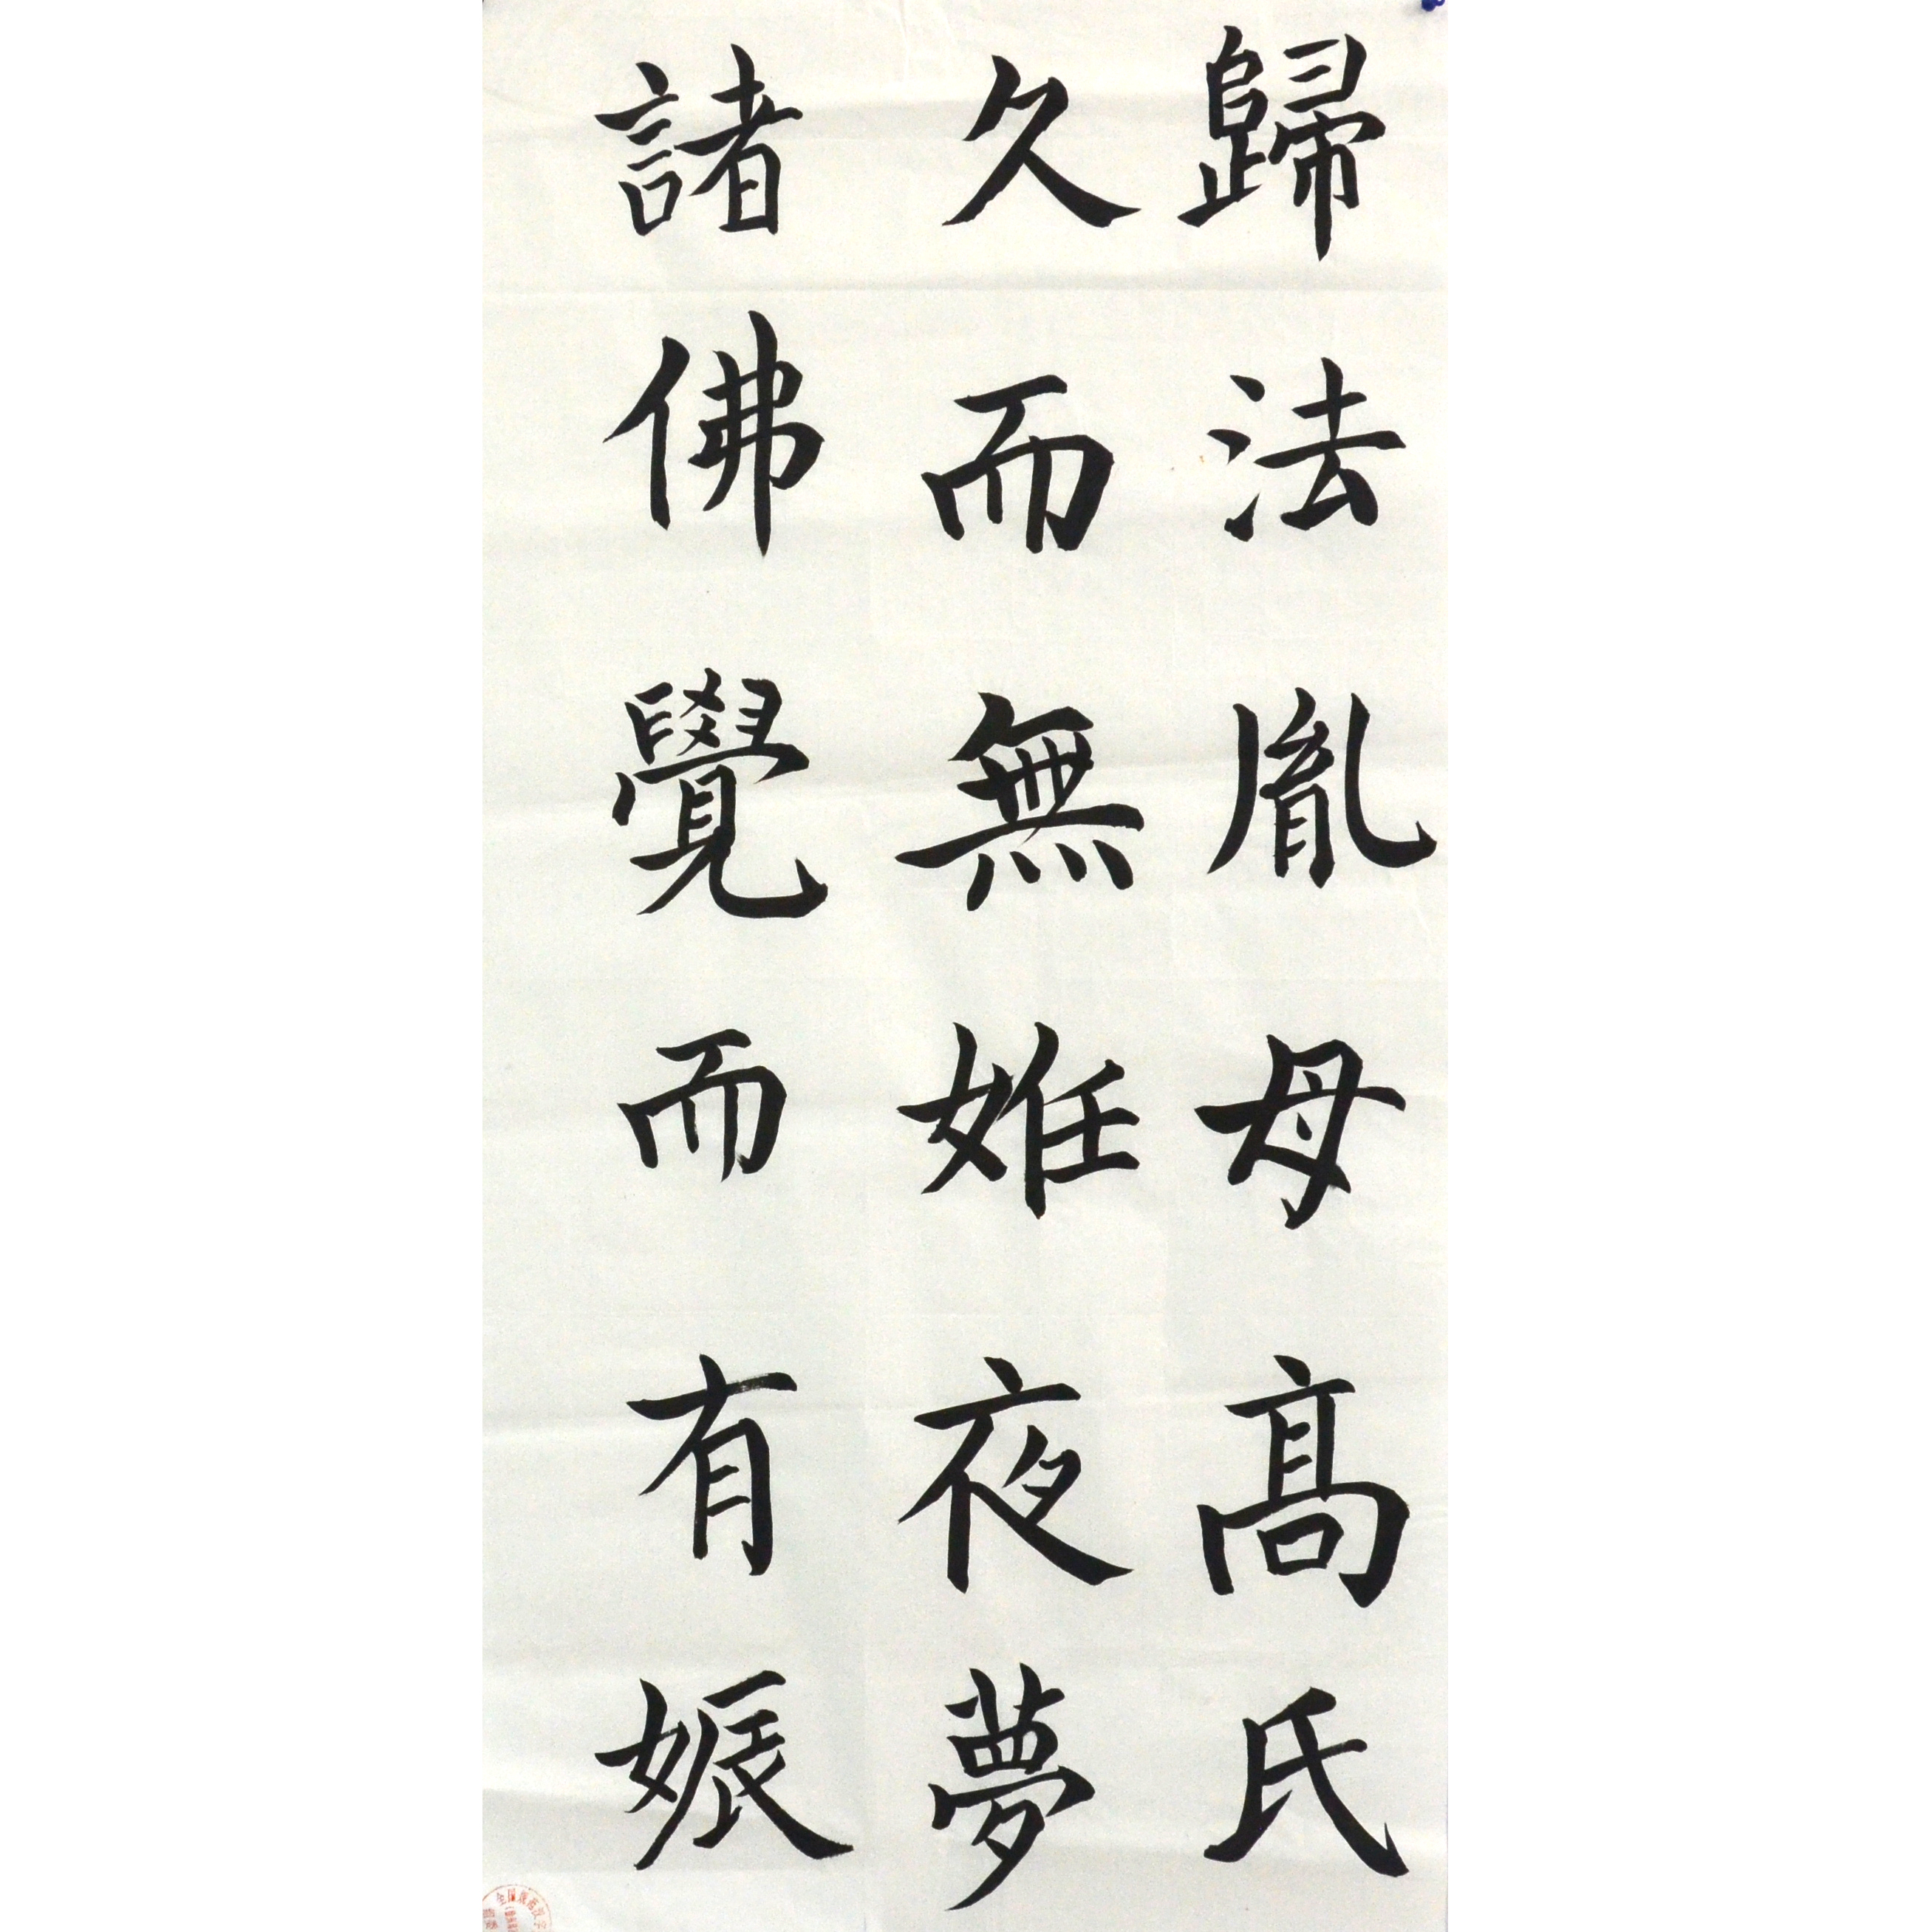 歸法胤母髙氏
久而無姙夜夢
諸佛覺而有娠